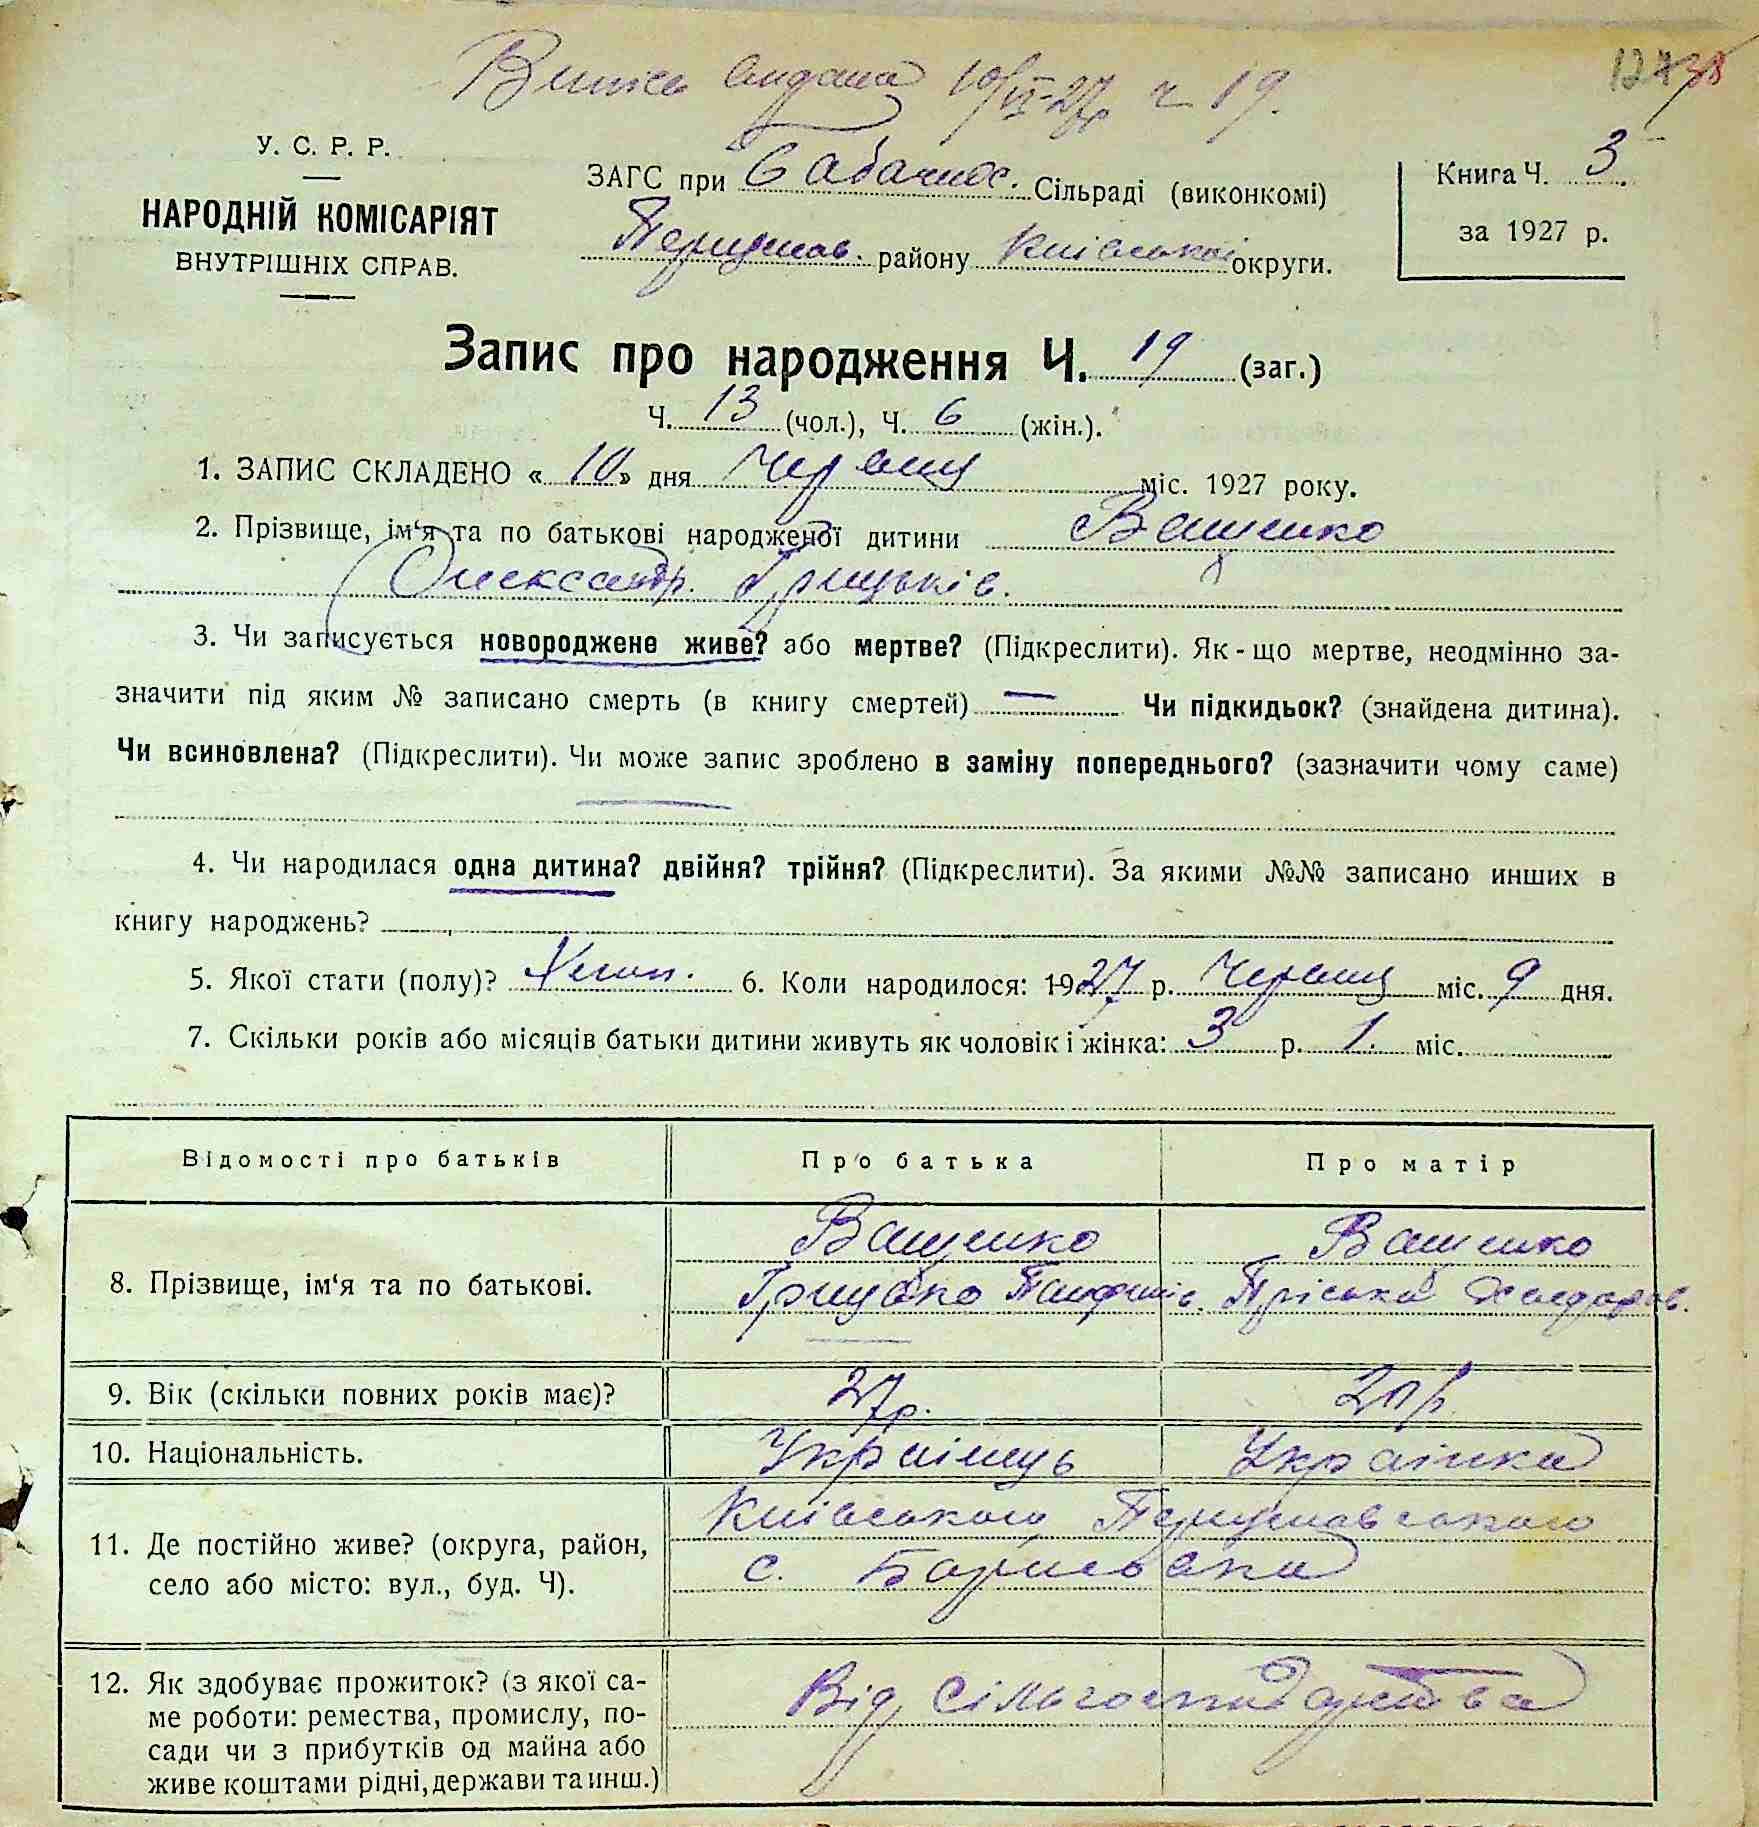 Випись видана 10/VI-27р ч 19.
У. С. Р. Р.
НАРОДНІЙ КОМІСАРІЯТ
ВНУТРІШНІХ СПРАВ.
ЗАГС при Сільраді (виконкомі)
району Київської округи.
Книга Ч. 3.
за 1927 р.
Запис про народження Ч. 19 (заг.)
Ч. 13 (чол.), Ч. 6 (жін.).
1. ЗАПИС СКЛАДЕНО «10» дня Червня міс. 1927 року.
2. Прізвище, ім‘я та по батькові народженої дитини Ващенко
Олександр. Грицьків.
3. Чи записується новороджене живе? або мертве? (Підкреслити). Як-що мертве, неодмінно за-
значити під яким № записано смерть (в книгу смертей) — Чи підкидьок? (знайдена дитина).
Чи всиновлена? (Підкреслити). Чи може запис зроблено в заміну попереднього? (зазначити чому саме)
—
4. Чи народилася одна дитина? двійня? трійня? (Підкреслити). За якими №№ записано инших в
книгу народжень?
5. Якої стати (полу)? 6. Коли народилося: 1927 р. Червня міс. 9 дня.
7. Скільки років або місяців батьки дитини живуть як чоловік і жінка: 3 р. 1. міс.
Відомості про батьків Про батька Про матір
8. Прізвище, ім‘я та по батькові. Ващенко Ващенко
Грицько Пріська
9. Вік (скільки повних років має)? 27р.
10. Національність. Українець Українка
11. Де постійно живе? (округа, район,
село або місто: вул., буд. Ч).
Київського
с.
12. Як здобуває прожиток? (з якої са-
ме роботи: ремества, промислу, по-
сади чи з прибутків од майна або
живе коштами рідні, держави та инш.)
Від сільгосподарства